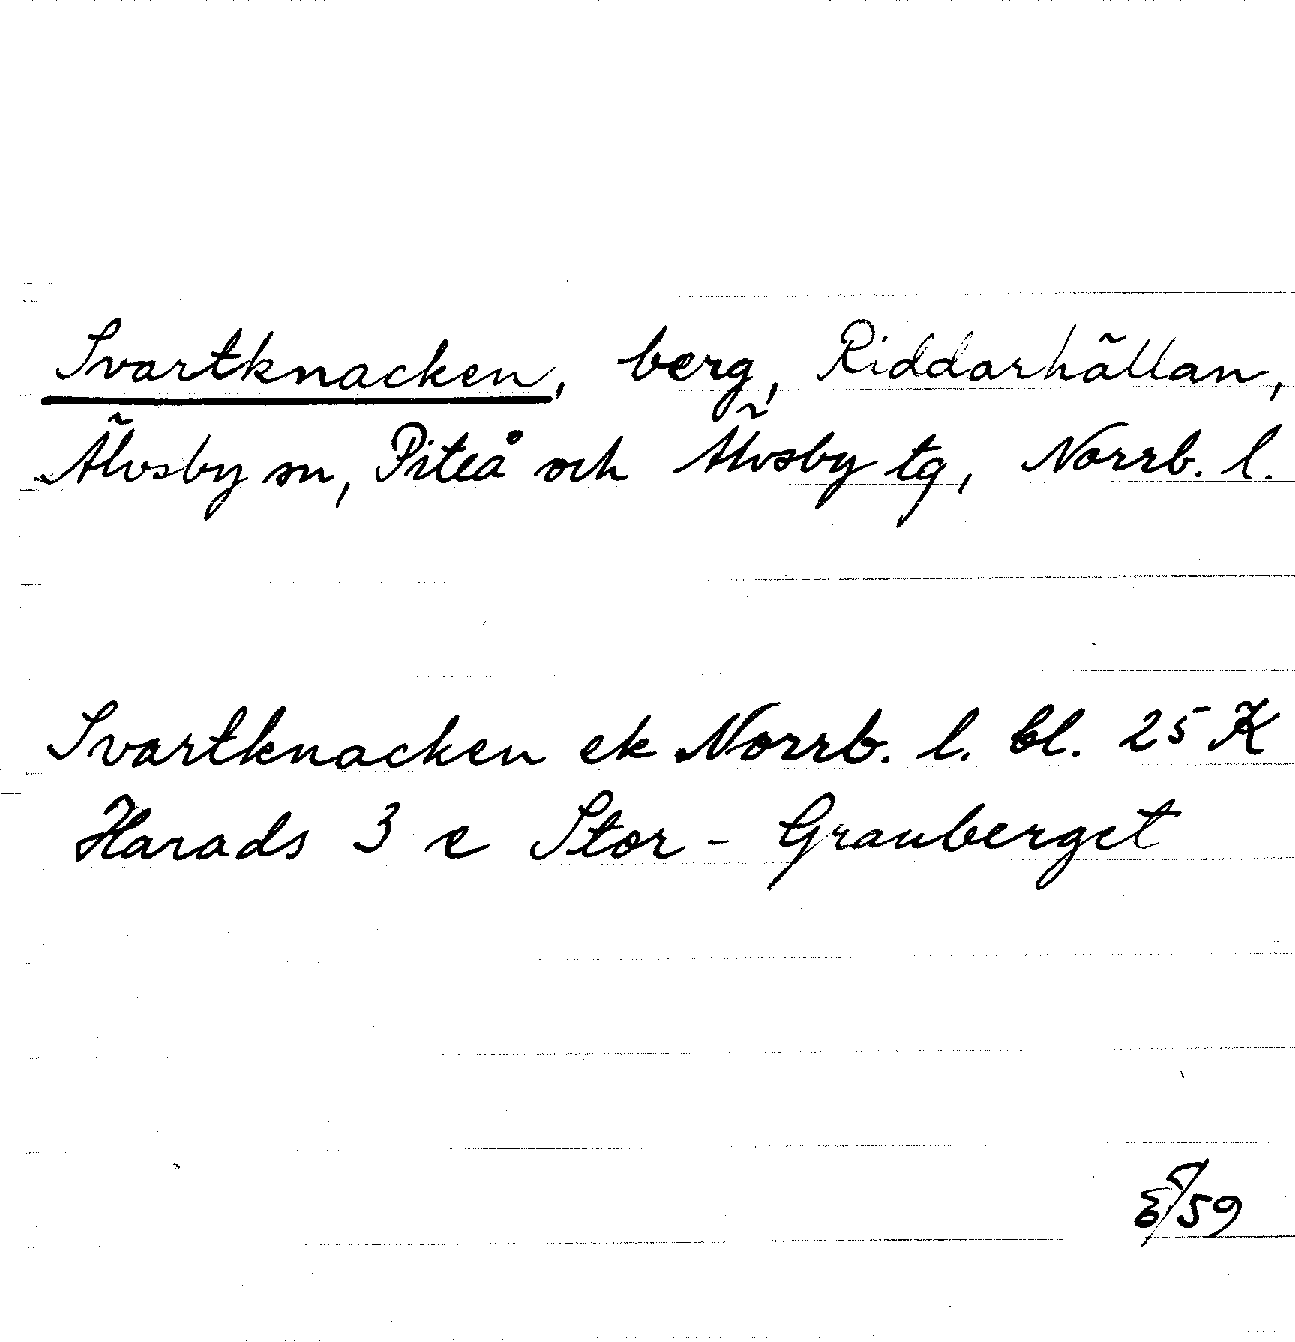 Svartknacken, berg, Riddarhällan,
Älvsby sn, Piteå och Älvsby tg, Norrb. l.
Svartknacken ek Norrb. l. bl. 25 K
Harads 3 e Stor - Grauberget
/59